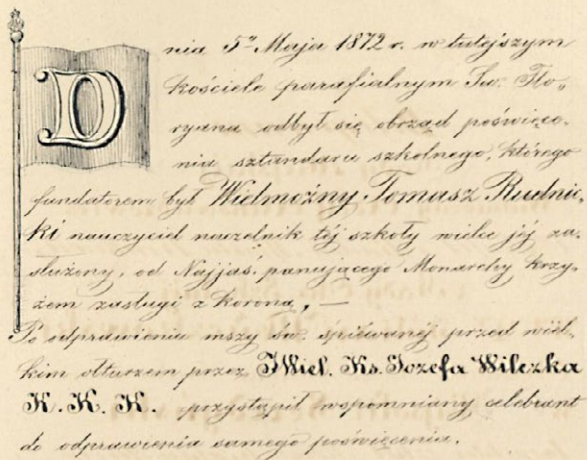 Dnia 5º Maja 1872 r. w tutejszym
kościele parafialnym Św. Flo„
ryana odbył się obrząd poświęce„
nia sztandaru szkolnego, którego
fundatorem był Wielmożny Tomasz Rudnic„
ki nauczyciel naczelnik téj szkoły wielce jéj za„
służony, od Najjaś. panującego Monarchy krzy„
żem zasługi z koroną, —
Po odprawieniu mszy św. śpiéwanéj przed wiel„
kim ołtarzem przez JWiel. Ks. Jozefa Wilczka
K. K. K. przystąpił wspomniany celebrant
do odprawienia samego poświęcenia.